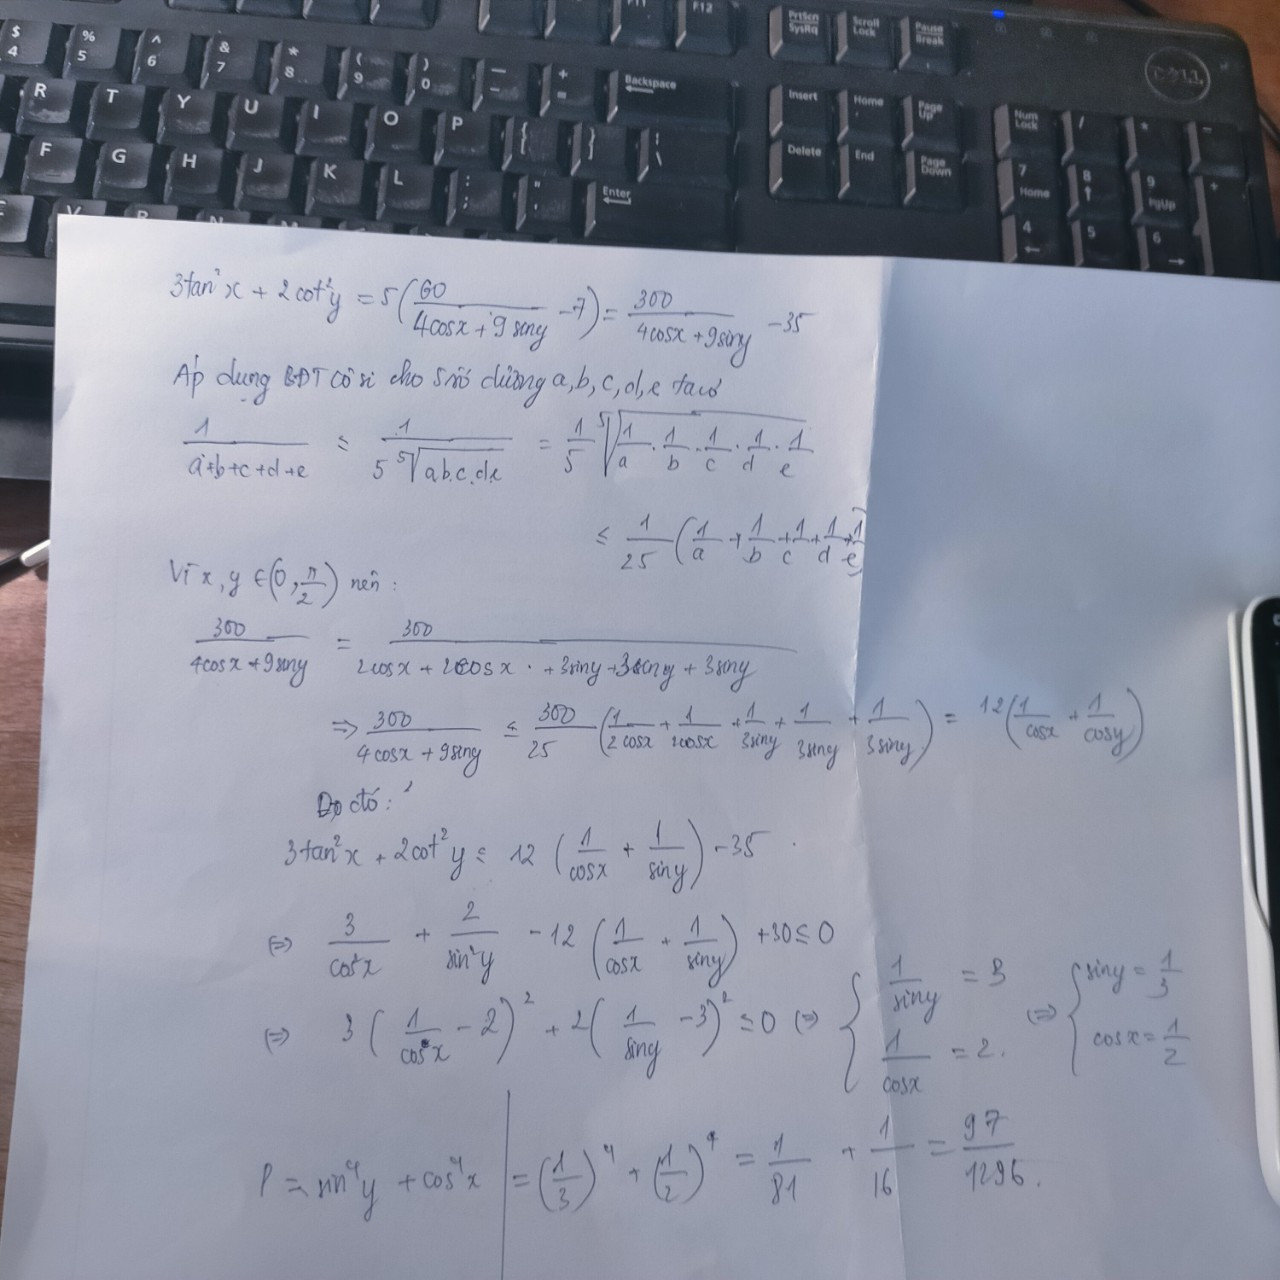 PrtScn SysRq Scroll Lock Pause Break
F11 F12
$ 4 % 5 ^ 6 & 7 * 8 ( 9 ) 0 — - + = Backspace Insert Home Page Up Num Lock / * -
DELL
R T Y U I O P { [ } ] | \ Delete End Page Down 7 Home 8 ↑ 9 PgUp +
F G H J K L : ; " ' Enter 4 ← 5 6 →
3tan²x + 2cot²y = 5(60/(4cosx + 9siny) - 7) = 300/(4cosx + 9siny) - 35
Áp dụng BĐT Cô si cho 5 số dương a, b, c, d, e ta có
1/(a+b+c+d+e) ≤ 1/(5 ⁵√(a.b.c.d.e)) = 1/5 ⁵√(1/a · 1/b · 1/c · 1/d · 1/e)
≤ 1/25 (1/a + 1/b + 1/c + 1/d + 1/e)
Vì x, y ∈ (0, π/2) nên :
300/(4cosx + 9siny) = 300/(2cosx + 2cosx + 3siny + 3siny + 3siny)
⇒ 300/(4cosx + 9siny) ≤ 300/25 (1/2cosx + 1/2cosx + 1/3siny + 1/3siny + 1/3siny) = 12(1/cosx + 1/cosy)
Do đó :
3tan²x + 2cot²y ≤ 12 (1/cosx + 1/siny) - 35
⇔ 3/cos²x + 2/sin²y - 12 (1/cosx + 1/siny) + 30 ≤ 0
⇔ 3(1/cosx - 2)² + 2(1/siny - 3)² ≤ 0 ⇔ { 1/siny = 3 1/cosx = 2. ⇔ { siny = 1/3 cosx = 1/2
P = sin⁴y + cos⁴x | = (1/3)⁴ + (1/2)⁴ = 1/81 + 1/16 = 97/1296.